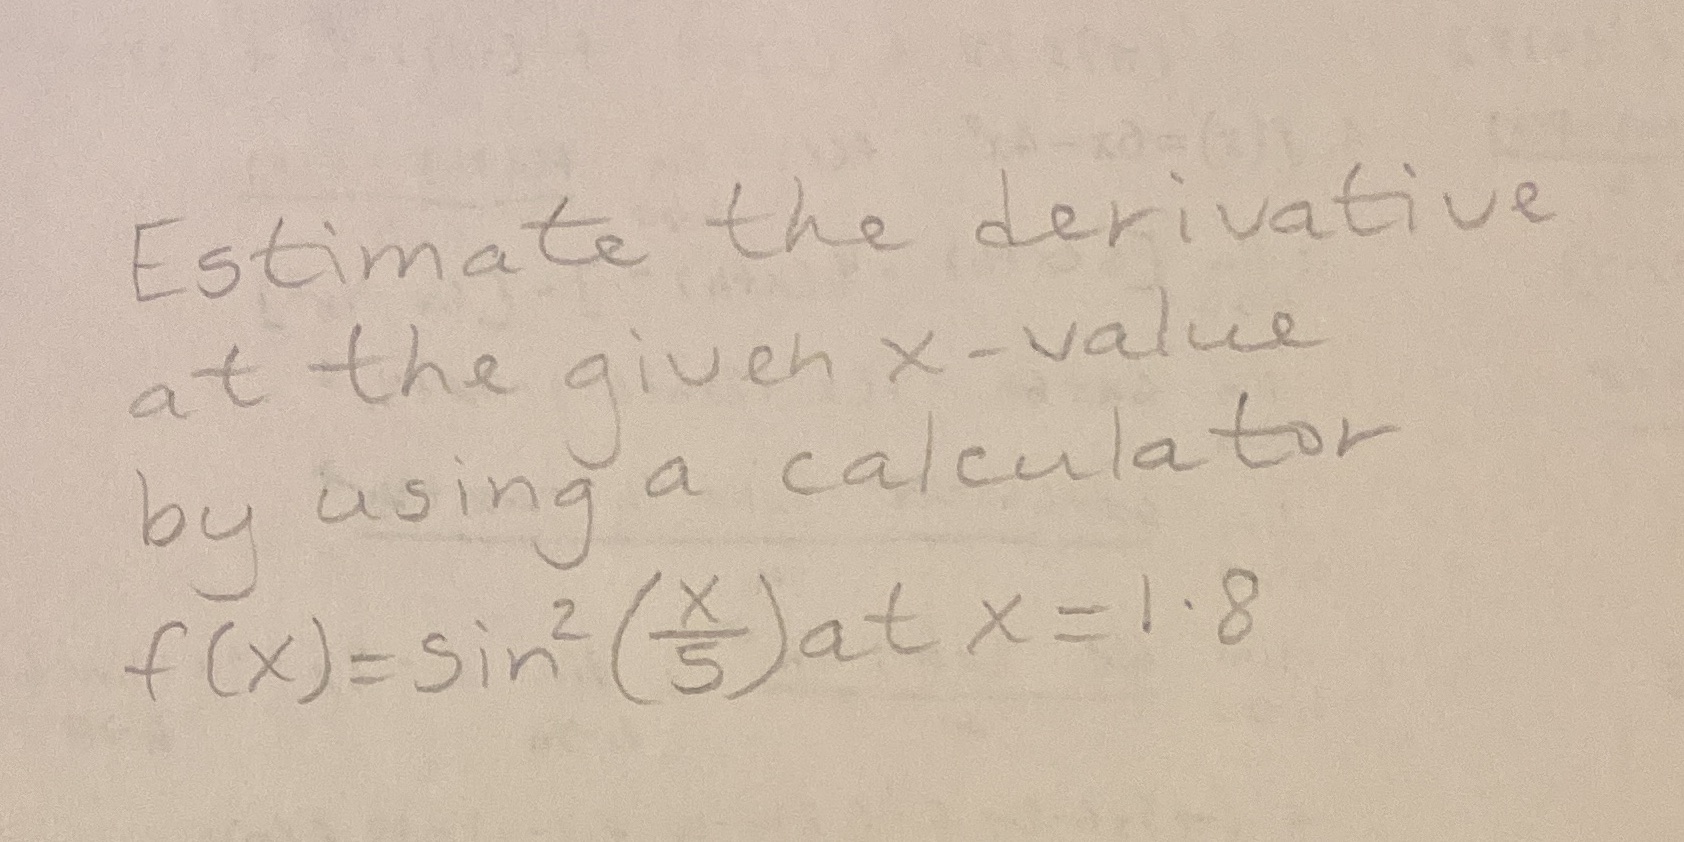 Estimate the derivative
at the given x-value
by using a calculator
f(x)=sin²(x/5) at x=1.8